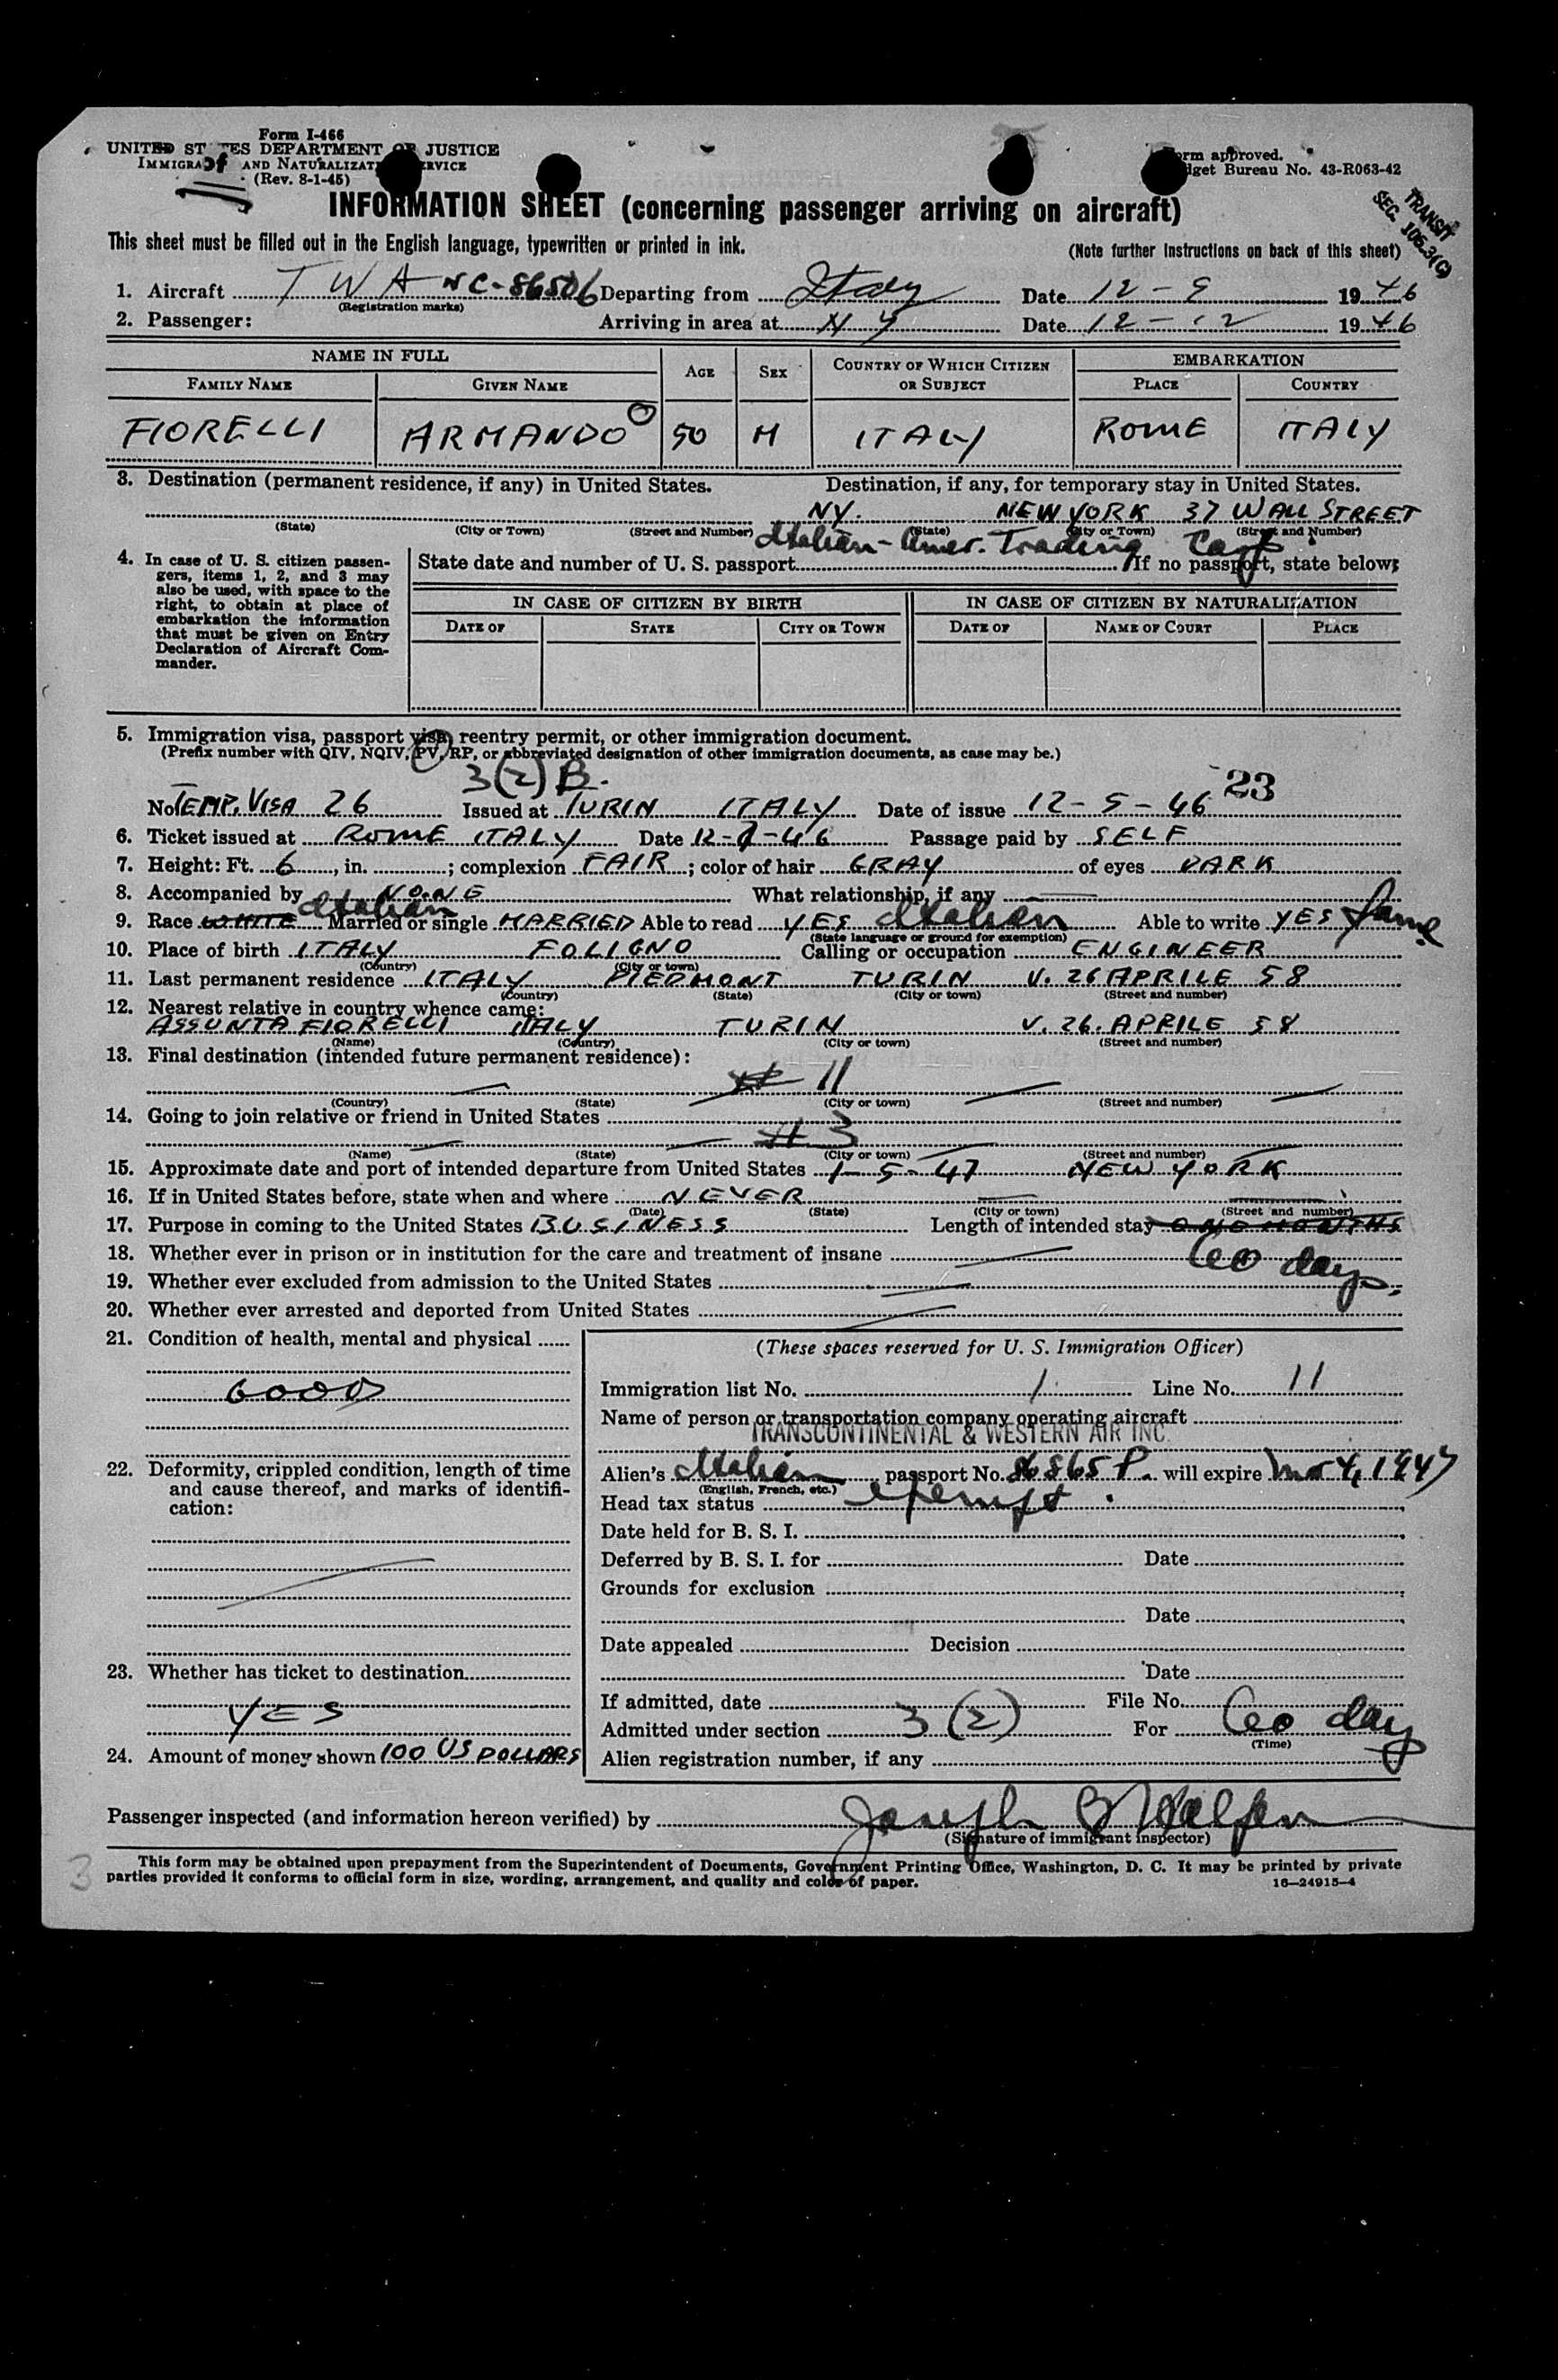 Form I-466
UNITED STATES DEPARTMENT OF JUSTICE
IMMIGRA AND NATURALIZAT SERVICE
(Rev. 8-1-45)
Form approved.
Budget Bureau No. 43-R063-42
TRANSIT
SEC. 105.3(C)
INFORMATION SHEET (concerning passenger arriving on aircraft)
This sheet must be filled out in the English language, typewritten or printed in ink. (Note further instructions on back of this sheet)
1. Aircraft TWA NC-86506 Departing from Italy Date 12-9 1946
(Registration marks)
2. Passenger: Arriving in area at NY Date 12-12 1946
NAME IN FULL AGE SEX COUNTRY OF WHICH CITIZEN OR SUBJECT EMBARKATION
FAMILY NAME GIVEN NAME PLACE COUNTRY
FIORELLI ARMANDO 50 M ITALY ROME ITALY
3. Destination (permanent residence, if any) in United States. Destination, if any, for temporary stay in United States.
NY. NEW YORK 37 WALL STREET
(State) (City or Town) (Street and Number) (State) (City or Town) (Street and Number)
Italian-Amer. Trading Corp
4. In case of U. S. citizen passengers, items 1, 2, and 3 may also be used, with space to the right, to obtain at place of embarkation the information that must be given on Entry Declaration of Aircraft Commander.
State date and number of U. S. passport If no passport, state below:
IN CASE OF CITIZEN BY BIRTH IN CASE OF CITIZEN BY NATURALIZATION
DATE OF STATE CITY OR TOWN DATE OF NAME OF COURT PLACE
5. Immigration visa, passport visa, reentry permit, or other immigration document.
(Prefix number with QIV, NQIV, PV, RP, or abbreviated designation of other immigration documents, as case may be.)
3(2) B. 23
No. TEMP. VISA 26 Issued at TURIN ITALY Date of issue 12-5-46
6. Ticket issued at ROME ITALY Date 12-7-46 Passage paid by SELF
7. Height: Ft. 6, in. ; complexion FAIR; color of hair GRAY of eyes DARK
8. Accompanied by NONE What relationship, if any
9. Race WHITE Italian Married or single MARRIED Able to read YES Italian Able to write YES Same
(State language or ground for exemption)
10. Place of birth ITALY FOLIGNO Calling or occupation ENGINEER
(Country) (City or town)
11. Last permanent residence ITALY PIEDMONT TURIN V. 26 APRILE 58
(Country) (State) (City or town) (Street and number)
12. Nearest relative in country whence came:
ASSUNTA FIORELLI ITALY TURIN V. 26. APRILE 58
(Name) (Country) (City or town) (Street and number)
13. Final destination (intended future permanent residence):
11
(Country) (State) (City or town) (Street and number)
14. Going to join relative or friend in United States
# 3
(Name) (State) (City or town) (Street and number)
15. Approximate date and port of intended departure from United States 1-5-47 NEW YORK
16. If in United States before, state when and where NEVER
(Date) (State) (City or town) (Street and number)
17. Purpose in coming to the United States BUSINESS Length of intended stay ONE MONTHS
18. Whether ever in prison or in institution for the care and treatment of insane 60 days.
19. Whether ever excluded from admission to the United States
20. Whether ever arrested and deported from United States
21. Condition of health, mental and physical
GOOD
22. Deformity, crippled condition, length of time and cause thereof, and marks of identification:
23. Whether has ticket to destination
YES
24. Amount of money shown 100 US DOLLARS
(These spaces reserved for U. S. Immigration Officer)
Immigration list No. 1 Line No. 11
Name of person or transportation company operating aircraft
TRANSCONTINENTAL & WESTERN AIR INC.
Alien's Italian passport No. 86865 P. will expire Mar 4, 1947
(English, French, etc.)
Head tax status exempt.
Date held for B. S. I.
Deferred by B. S. I. for Date
Grounds for exclusion
Date
Date appealed Decision
Date
If admitted, date File No.
Admitted under section 3 (2) For 60 day
(Time)
Alien registration number, if any
Passenger inspected (and information hereon verified) by Joseph
(Signature of immigrant inspector)
This form may be obtained upon prepayment from the Superintendent of Documents, Government Printing Office, Washington, D. C. It may be printed by private
parties provided it conforms to official form in size, wording, arrangement, and quality and color of paper. 16—24915-4
3